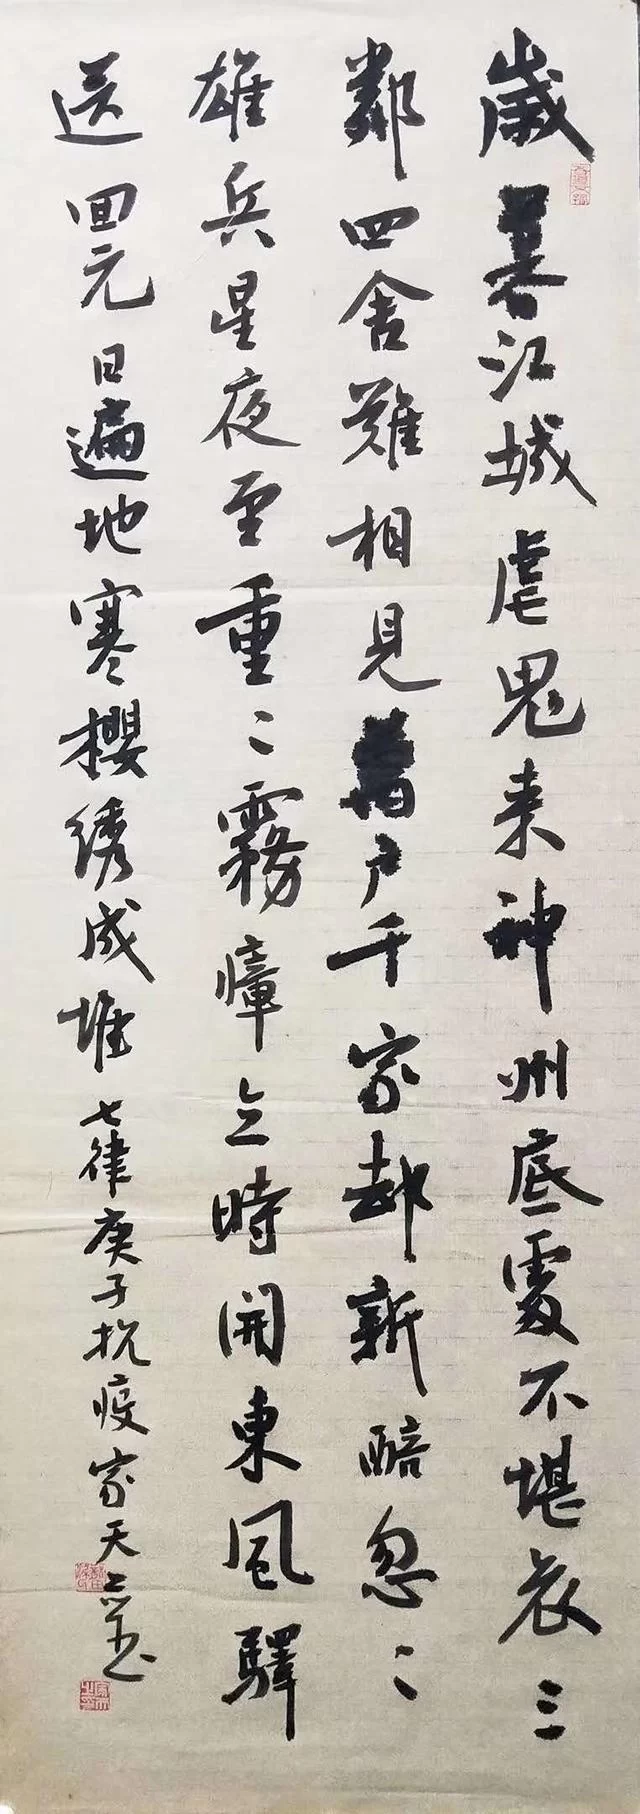 歲暮江城虐鬼来神州底處不堪哀三
鄰四舍難相見萬户千家却新醅忽〻
雄兵星夜至重〻霧瘴立時開東風驛
送回元日遍地寒櫻绣成堆七律庚子抗疫家天